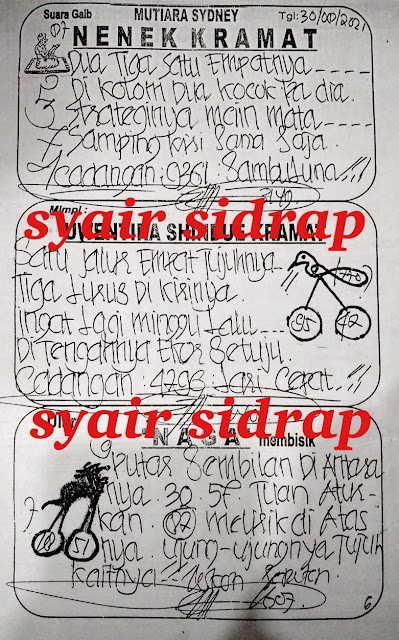 Suara Gaib
MUTIARA SYDNEY
Tgl: 30/09/2021
NENEK KRAMAT
Dua Tiga Satu Empatnya ----
Di kolom Dua kocok Pa dia.
Strateginya main mata ----
Samping kisi Sama Saja.
Cadangan: 9261: Sambutuna !!!
syair sidrap
Mimpi:
KRAMAT
Satu Jalur Empat Tujuhnya --
Tiga Lurus Di kirinya.
Ingat Lagi Minggu Lalu ---
Di Tengahnya Ekor Setuju.
Cadangan: 4293 Jari Cepat. !!!
95 42
syair sidrap
NAGA
membisik
9
Putar Sembilan Di Antara
nya. 32 57 Tuan Atur-
7
kan. 07 melirik di Atas
nya ujung-ujungnya Tujuh
kaitnya --
51
6